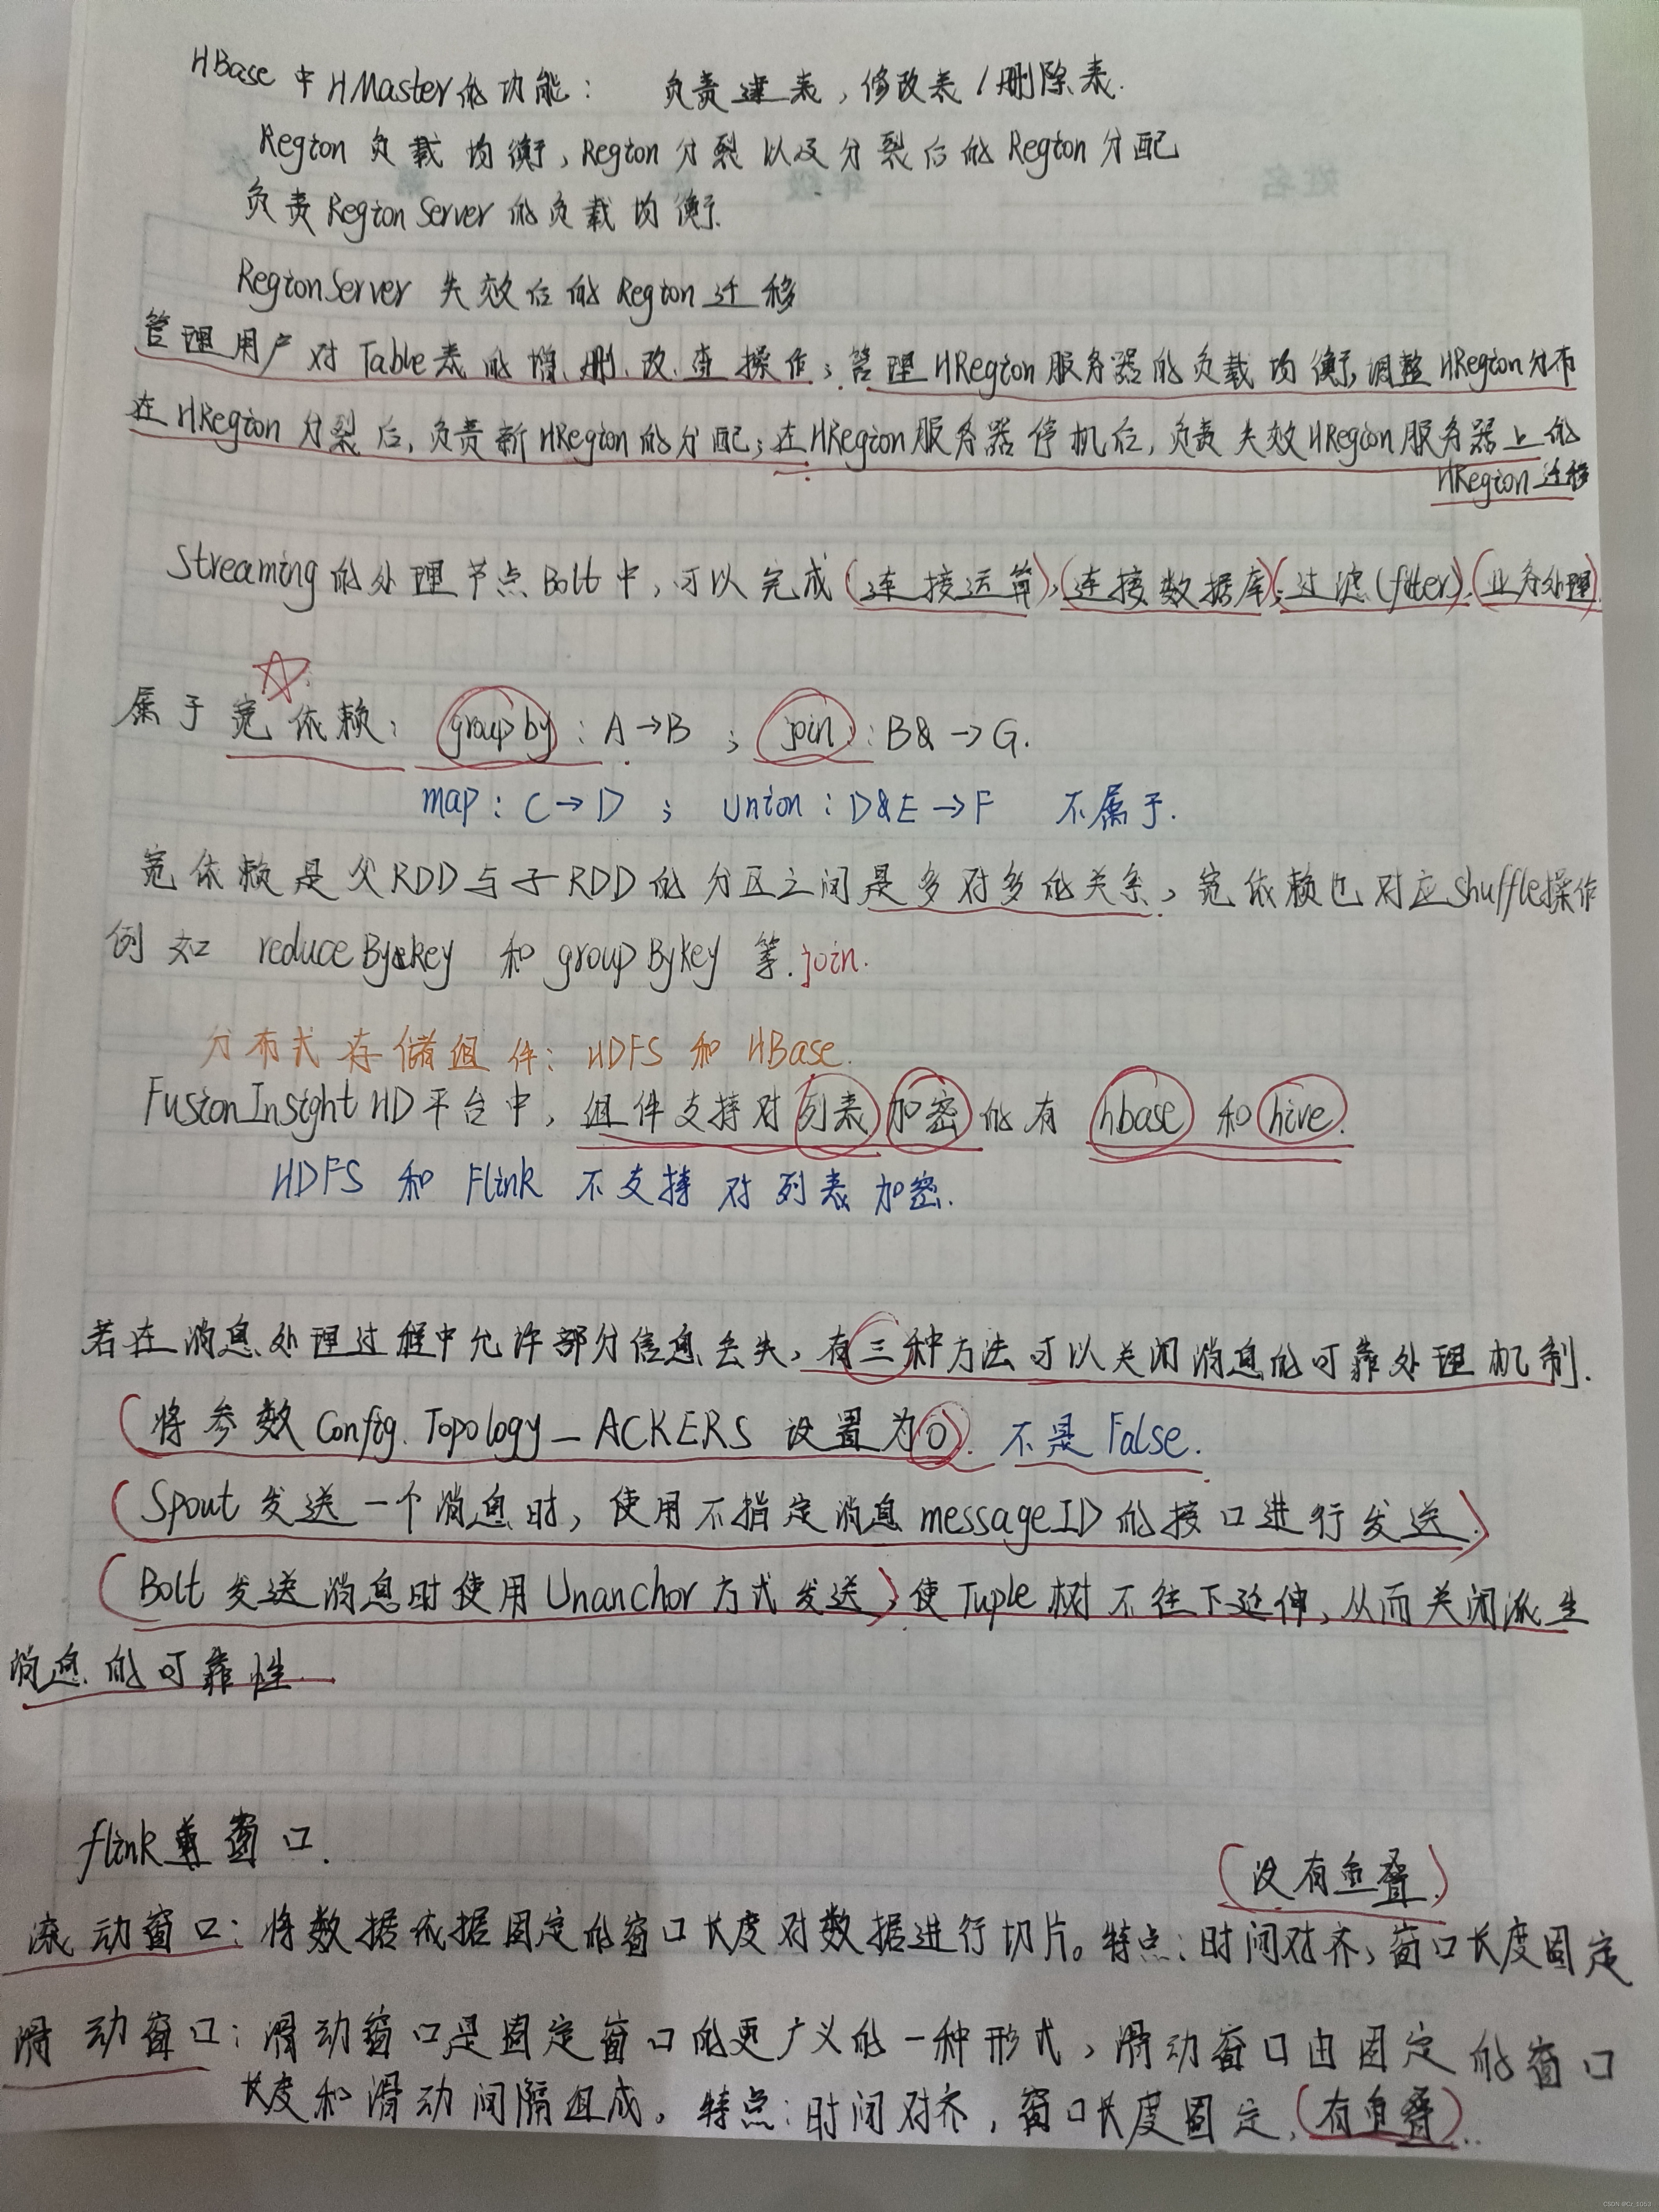 HBase 中 HMaster的功能： 负责建表，修改表/删除表.
Region 负载均衡，Region分裂以及分裂后的Region分配
负责RegionServer的负载均衡.
RegionServer 失效后的Region迁移
管理用户对Table表的增、删、改、查操作；管理HRegion服务器的负载均衡，调整HRegion分布
在HRegion分裂后，负责新HRegion的分配；在HRegion服务器停机后，负责失效HRegion服务器上的
HRegion迁移
Streaming的处理节点Bolt中，可以完成(连接运算)，(连接数据库)，(过滤(filter))，(业务处理).
属于宽依赖： group by：A→B ； join：B& →G.
map：C→D ； Union：D&E→F 不属于.
宽依赖是父RDD与子RDD的分区之间是多对多的关系，宽依赖也对应shuffle操作
例如 reduceBykey 和 groupBykey 等.join.
分布式存储组件：HDFS 和 HBase.
FusionInsight HD平台中，组件支持对列表加密的有 hbase 和 hive.
HDFS 和 Flink 不支持对列表加密.
若在消息处理过程中允许部分信息丢失，有三种方法可以关闭消息的可靠处理机制.
(将参数 Config.Topology_ACKERS 设置为0). 不是False.
(Spout 发送一个消息时，使用不指定消息messageID的接口进行发送.)
(Bolt 发送消息时使用Unanchor方式发送)，使Tuple树不往下延伸，从而关闭派生
消息的可靠性.
flink 窗口.
(没有重叠)
滚动窗口：将数据依据固定的窗口长度对数据进行切片。特点：时间对齐，窗口长度固定
滑动窗口：滑动窗口是固定窗口的更广义的一种形式，滑动窗口由固定的窗口
长度和滑动间隔组成。特点：时间对齐，窗口长度固定，(有重叠)..